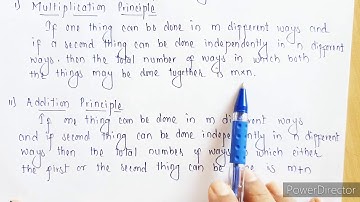 i) Multiplication Principle
If one thing can be done in m different ways and
if a second thing can be done independently in n different
ways. then the total number of ways in which both
the things may be done together is m×n.
ii) Addition Principle
If one thing can be done in m different ways
and if second thing can be done independently in n different
ways then the total number of ways in which either
the first or the second thing can be done is m+n
PowerDirector